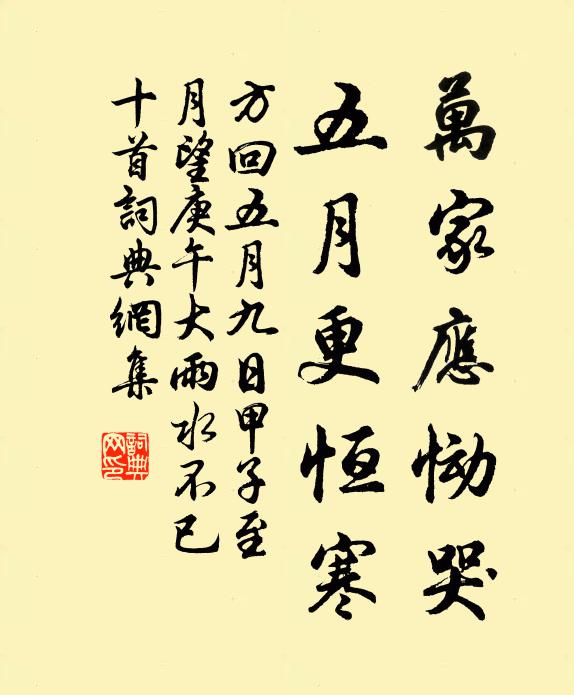 萬家應恸哭
五月更恒寒
方回五月九日甲子至
月望庚午大雨水不已
十首詞典網集
詞典網印